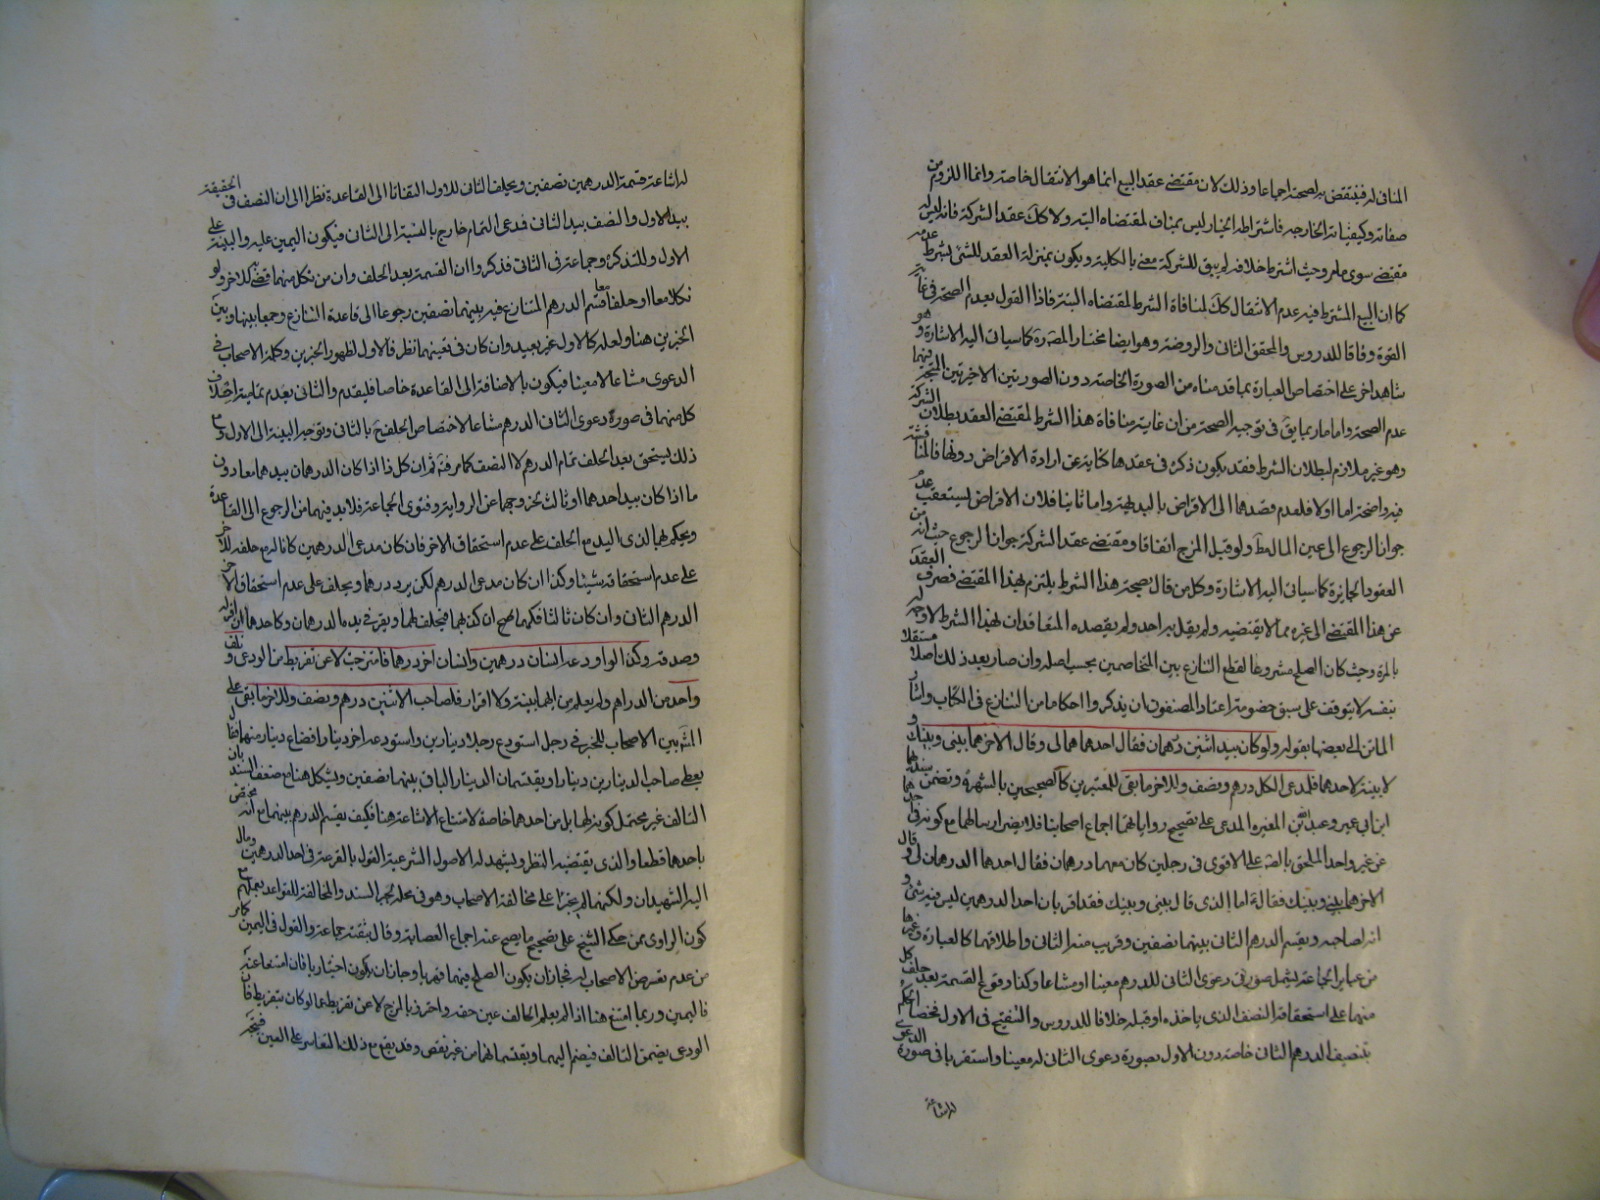 المنافي له فينتقض بر لصحته اجماعا وذلك لان مقتضى عقد البيع انما هو الانتقال خاصة واما اللزوم من
صفاته وكيفياته الخارجة فاشتراط الخيار ليس بمناف لمقتضاه البتة ولا كك عقد الشركة فانه ليس له
مقتضى سوى ما مر وحيث اشترط خلافه لم يبق للشركة معنى بالكلية ويكون بمنزلة العقد للشئ بشرط عدمه
كما ان البيع المشترط فيه عدم الانتقال كك لمنافاة الشرط لمقتضاه البتة فاذا القول بعدم الصحة في غاية
القوة وفاقا للدروس والمحقق الثاني والروضة وهو ايضا مختار المص ره كما سياتي اليه الاشارة وهو
شاهد اخر على اختصاص العبارة بما قدمناه من الصورة الخاصة دون الصورتين الاخرتين المتجه فيهما
عدم الصحة واما ما ربما يق في توجيه الصحة من ان غاية منافاة هذا الشرط لمقتضى العقد بطلان الشركة
وهو غير ملازم لبطلان الشرط فقد يكون ذكره في عقدها كناية عن ارادة الاقراض دونها فالمناقشة
فيه واضحة اما اولا فلعدم قصدهما الى الاقراض بالبديهة واما ثانيا فلان الاقراض يستعقب عدم
جواز الرجوع الى عين المال مط ولو قبل المزج اتفاقا ومقتضى عقد الشركة جواز الرجوع حيث انه من
العقود الجايزة كما سياتي اليه الاشارة وكل من قال بصحة هذا الشرط يلتزم بهذا المقتضى فصرف العقد
عن هذا المقتضى الى غيره مما لا يقتضيه ولم يقل به احد ولم يقصده المتعاقدان لهذا الشرط لا وجه له
بالمرة وحيث كان الصلح مشروعا لقطع التنازع بين المتخاصمين بحسب اصله وان صار بعد ذلك اصلا مستقلا
بنفسه لا يتوقف على سبق خصومة اعتاد المصنفون ان يذكروا احكاما من التنازع في الكتاب واشار
الماتن الى بعضها بقوله ولو كان بيد اثنين درهمان فقال احدهما هما لي وقال الاخر هما بيني وبينك و
لا بينة لاحدهما فلمدعي الكل درهم ونصف وللاخر ما بقي للمعتبرين كالصحيحين بالشهرة وتضمن سندهما
ابن ابي عمير وعبد الله بن المغيرة المدعى على تصحيح رواياتهما اجماع اصحابنا فلا يضر ارسالهما مع كونه في احدهما
عن غير واحد الملحق بالصحة على الاقوى في رجلين كان معهما درهمان فقال احدهما الدرهمان لي وقال
الاخر هما بيني وبينك فقال ع اما الذي قال بيني وبينك فقد اقر بان احد الدرهمين ليس فيه شئ و
انه لصاحبه ويقسم الدرهم الثاني بينهما نصفين وقريب منه الثاني واطلاقهما كالعبارة وغيرها
من عباير الجماعة يشمل صورتي دعوى الثاني للدرهم معينا او مشاعا وكذا وقوع القسمة بعد حلف كل
منهما على استحقاقه النصف الذي ياخذه او قبله خلافا للدروس والتنقيح في الاول فخصا الحكم
بتنصيف الدرهم الثاني خاصة دون الاول بصورة دعوى الثاني له معينا واستقربا في صورة الدعوى
له اشاعة
له اشاعة قسمة الدرهمين نصفين ويحلف الثاني للاول التفاتا الى القاعدة نظرا الى ان النصف في الحقيقة
بيد الاول والنصف بيد الثاني فدعى التمام خارج بالنسبة الى الثاني فيكون اليمين عليه والبينة على
الاول وللتذكرة وجماعة في الثاني فذكروا ان القسمة بعد الحلف وان من نكل منهما قضى به للاخر ولو
نكلا معا او حلفا معا قسم الدرهم المتنازع فيه بينهما نصفين رجوعا الى قاعدة التنازع وجمعا بينها وبين
الخبرين هنا ولعله كالاول غير بعيد وان كان في تعينهما نظر فالاول لظهور الخبرين وكلمة الاصحاب في
الدعوى مشاعا لا معينا فيكون بالاضافة الى القاعدة خاصا فليقدم والثاني بعدم تمامية احلاف
كل منهما في صورة دعوى الثاني الدرهم مشاعا لاختصاص الحلف ح بالثاني وتوجه البينة الى الاول ومع
ذلك يستحق بعد الحلف تمام الدرهم لا النصف كما مر فة ثم ان كل ذا اذا كان الدرهمان بيدهما معا دون
ما اذا كان بيد احدهما او ثالث لخروجهما عن الرواية وفتوى الجماعة فلا بد فيهما من الرجوع الى القاعدة
ويحكم بها لذي اليد مع الحلف على عدم استحقاق الاخر فان كان مدعى الدرهمين كانا له مع حلفه للاخر
على عدم استحقاقه شيئا وكذا ان كان مدعى الدرهم لكن يرد درهما ويحلف على عدم استحقاق الاخر
الدرهم الثاني وان كان ثالثا فكهما لهم ان كذبهما فيحلف لهما ويقر في يده الدرهمان وكاحدهما ان اقر له
وصدقه وكذا لو اودعه انسان درهمين وانسان اخر درهما فامتزجت لا عن تفريط من الودعي وتلف
واحد من الدراهم ولم يعلم من ايهما ببينة ولا اقرار فلصاحب الاثنين درهم ونصف وللاخر ما بقي على
المش بين الاصحاب للخبر في رجل استودع رجلا دينارين واستودعه اخر دينارا فضاع دينار منها فقال
يعطي صاحب الدينارين دينارا ويقتسمان الدينار الباقي بينهما نصفين ويشكل هنا مع ضعف السند بان
التالف غير محتمل كونه لهما بل من احدهما خاصة لامتناع الاشاعة هنا فكيف يقسم الدرهم بينهما مع انه مختص
باحدهما قطعا والذي يقتضيه النظر ويشهد له الاصول الشرعية القول بالقرعة في احد الدرهمين ومال
اليه الشهيدان ولكنهما لم يجترئا على مخالفة الاصحاب وهو في محله لجبر السند والمخالفة للقواعد بعملهم مع
كون الراوي ممن حكى الشيخ على تصحيح ما يصح عنه اجماع العصابة وقال بثقته جماعة والقول في اليمين كما مر
من عدم تعرض الاصحاب له فجاز ان يكون الصلح فيهما قهريا وجاز ان يكون اختياريا فان امتنعا عنه
فاليمين وربما امتنع هنا اذا لم يعلم الحالف عين حقه واحترز بالمزج لا عن تفريط عما لو كان بتفريط فان
الودعي يضمن التالف فيضم اليهما ويقتسمانهما من غير نقص وقد يقع مع ذلك التعاسر على العين فيتجه